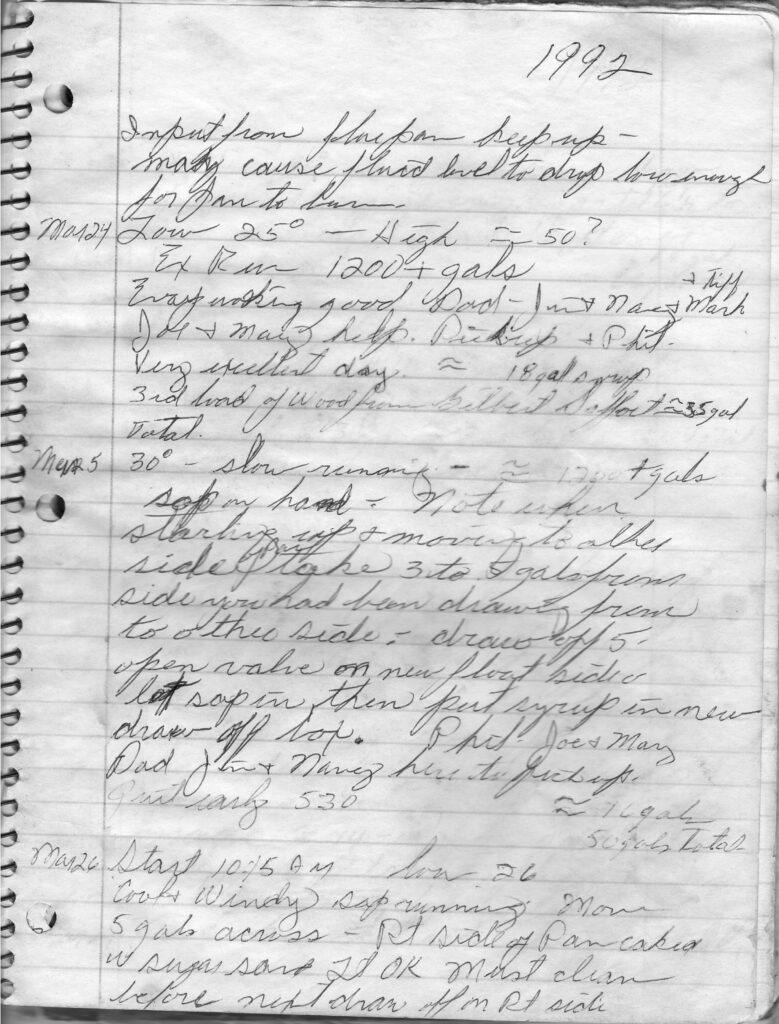 1992
Input from flue pan keep up -
may cause fluid level to drop low enough
for pan to burn.
Mar 24 Low 25° - High ≈ 50?
Ex Run 1200 + gals
+ Tiff
Evap working good Dad - Jim + Nancy + Mark
Joe + Mary help. Pickup + Phil.
Very excellent day. ≈ 18 gal syrup
3rd load of wood from Gilbert ≈ 35 gal
Total.
Mar 25 30° - slow running - ≈ 1200 + gals
sap on hand - Note when
starting up + moving to other
side take 3 to gals from
side you had been drawing from
to other side - draw off 5 -
open valve on new float side
let sap in, then put syrup in new
draw off box. Phil - Joe + Mary
Dad Jim + Nancy here to pick up.
Quit early 530 ≈ 16 gals
50 gals Total
Mar 26 Start 10:15 AM low 26
Cool + Windy sap running. Move
5 gals across - Rt side of Pan caked
w sugar sand Lt OK Must clean
before next draw off on Rt side